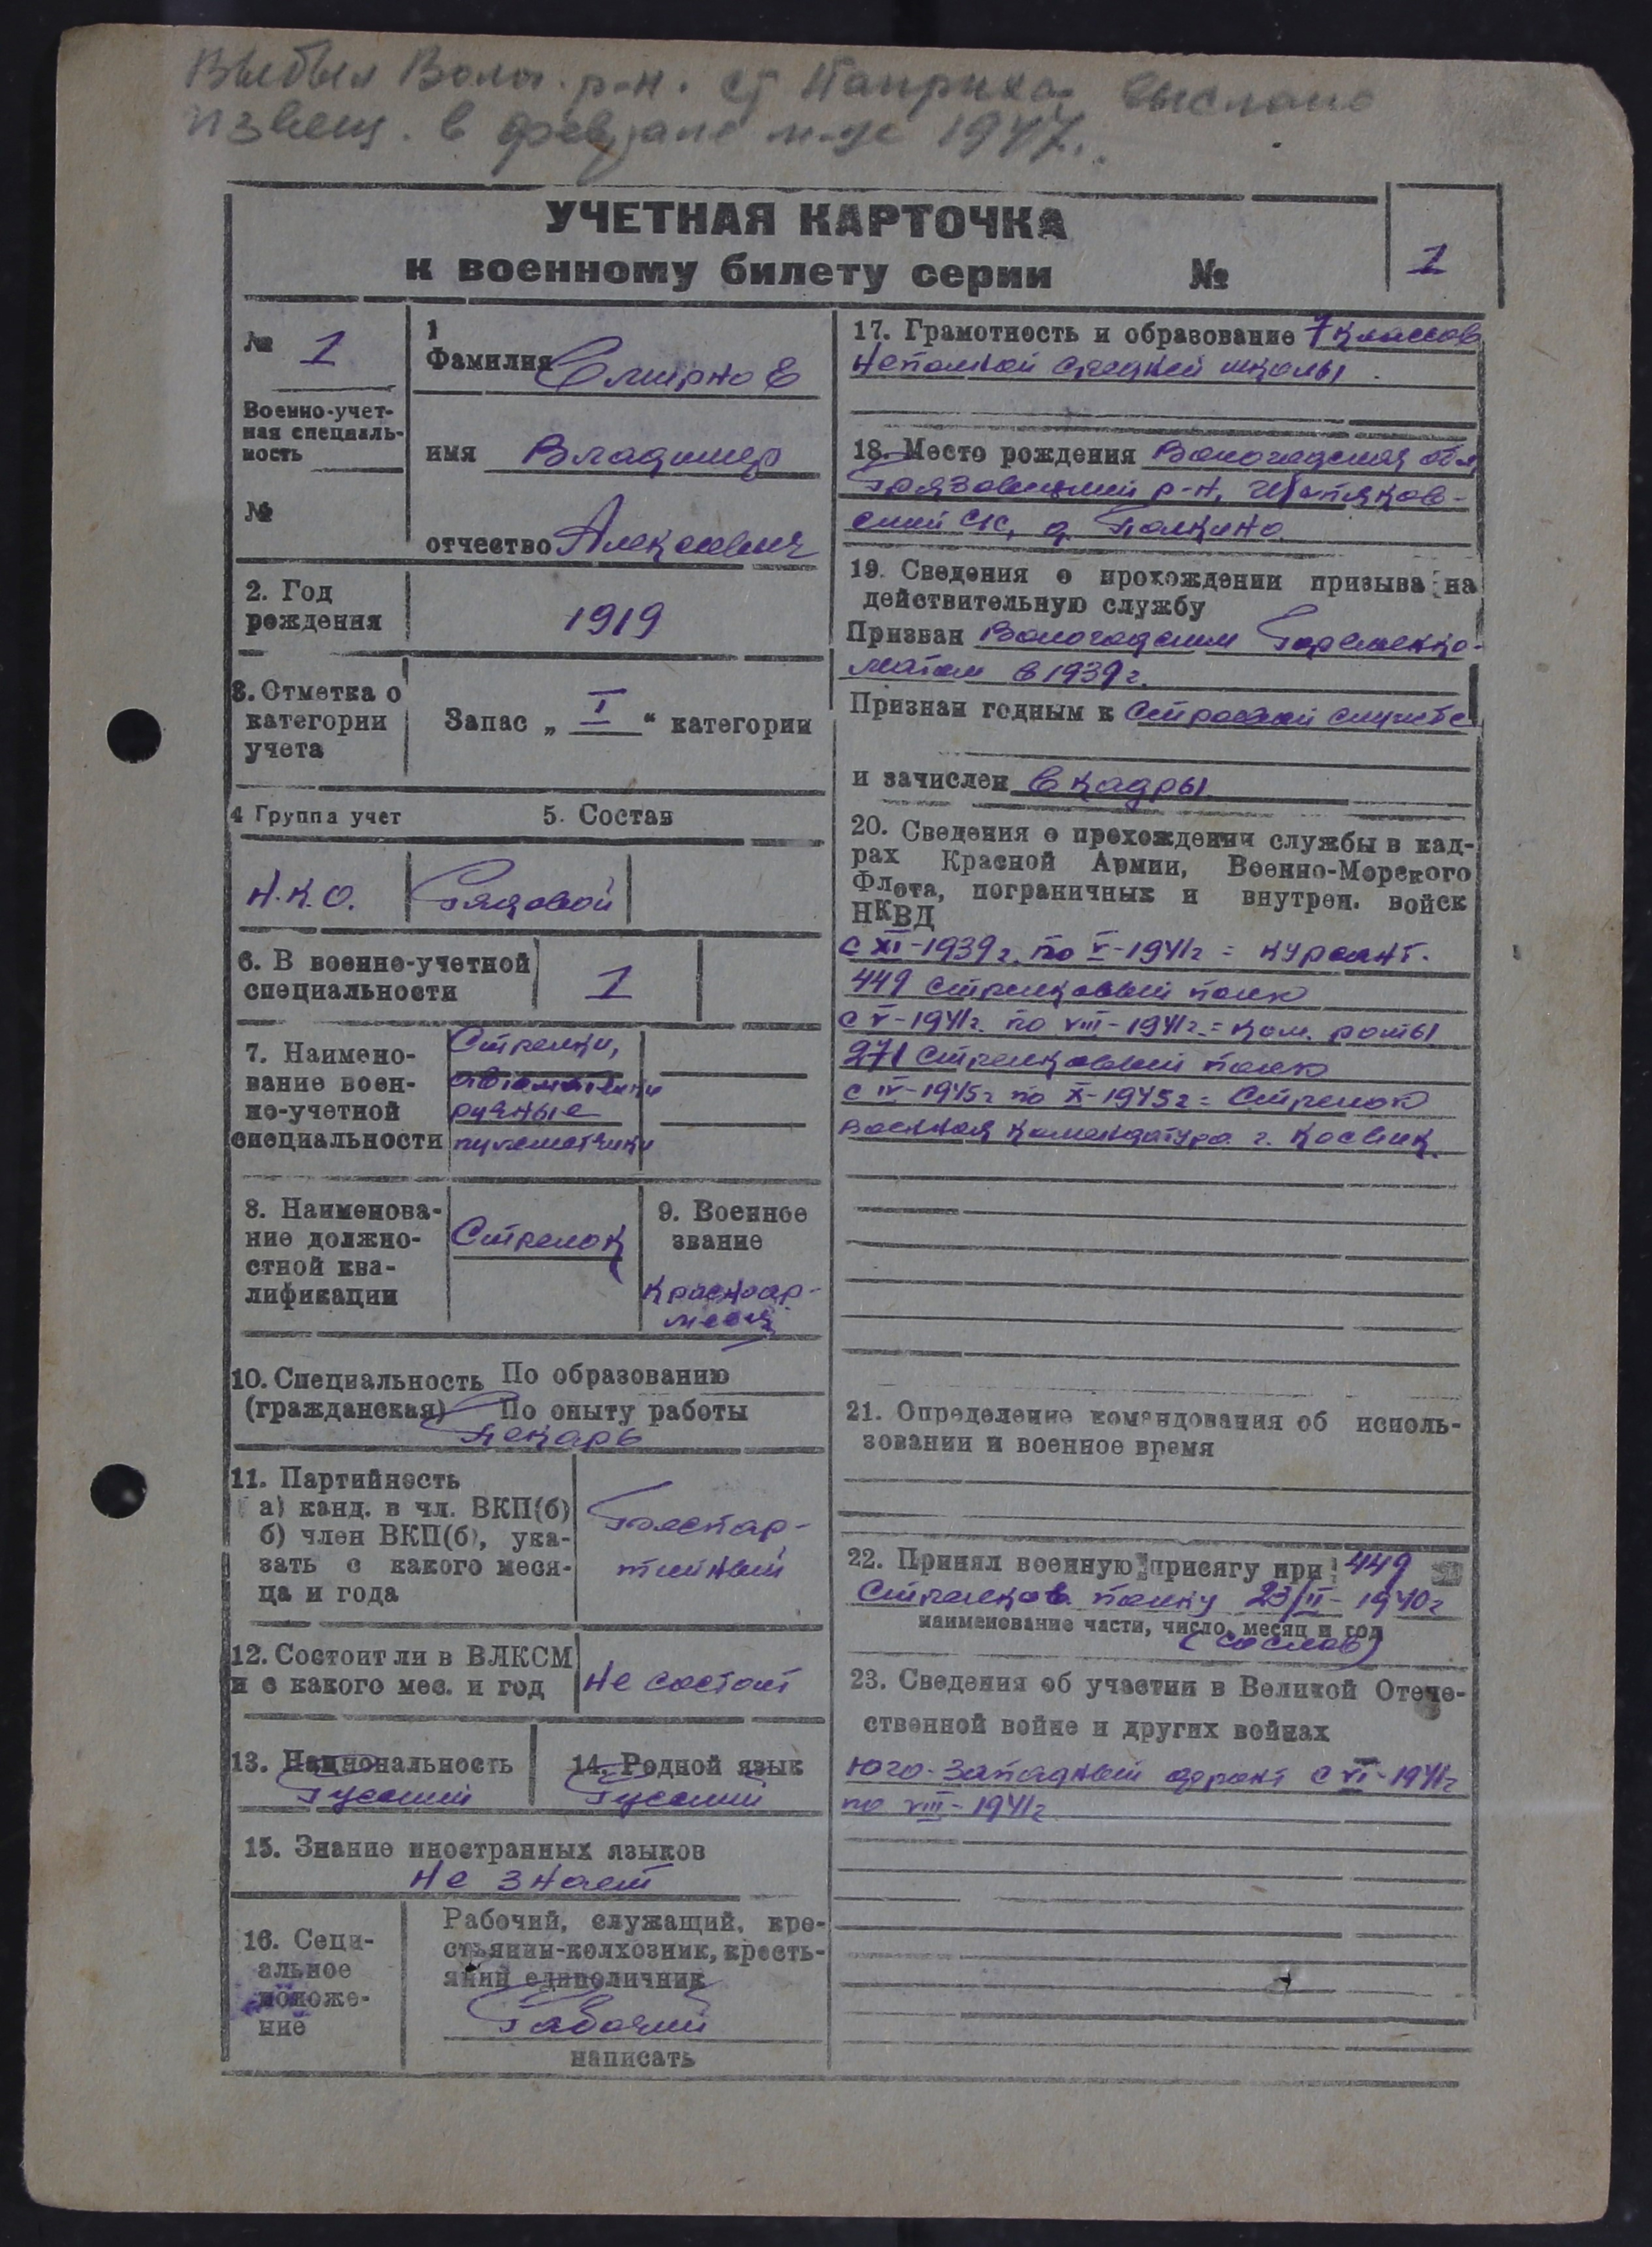 Выбыл Волог. р-н. ст Паприха выслано
извещ. в феврале м-це 1947г.
УЧЕТНАЯ КАРТОЧКА
к военному билету серии №
1
№ 1
Военно-учет-
ная специаль-
ность
№
1
Фамилия Смирнов
имя Владимир
отчество Алексеевич
2. Год
рождения
1919
3. Отметка о
категории
учета
Запас „ I “ категории
4 Группа учет
5. Состав
Н.К.О.
Рядовой
6. В военно-учетной
специальности
1
7. Наимено-
вание воен-
но-учетной
специальности
Стрелки,
автоматчики
ручные
пулеметчики
8. Наименова-
ние должно-
стной ква-
лификации
Стрелок
9. Военное
звание
Красноар-
меец
10. Специальность По образованию
(гражданская) По опыту работы
Пекарь
11. Партийность
а) канд. в чл. ВКП(б)
б) член ВКП(б), ука-
зать с какого меся-
ца и года
Беспар-
тийный
12. Состоит ли в ВЛКСМ
и с какого мес. и год
Не состоит
13. Национальность
Русский
14. Родной язык
Русский
15. Знание иностранных языков
Не знает
16. Соци-
альное
положе-
ние
Рабочий, служащий, кре-
стьянин-колхозник, кресть-
янин единоличник
Рабочий
написать
17. Грамотность и образование 7 классов
Неполной средней школы
18. Место рождения Вологодская обл
Грязовецкий р-н,
ский с/с, д. Палкино
19. Сведения о прохождении призыва на
действительную службу
Призван Вологодским Горвоенко-
матом в 1939 г.
Признан годным к строевой службе
и зачислен в кадры
20. Сведения о прохождении службы в кад-
рах Красной Армии, Военно-Морского
Флота, пограничных и внутрен. войск
НКВД
с XI-1939 г. по V-1941 г = курсант.
449 стрелковый полк
с V-1941 г. по VIII-1941 г. = ком. роты
271 стрелковый полк
с IV-1945 г по X-1945 г = Стрелок
Военная комендатура г.
21. Определение командования об исполь-
зовании и военное время
22. Принял военную присягу при 449
Стрелков. полку 23/II-1940 г
наименование части, число, месяц и год
(со слов)
23. Сведения об участии в Великой Отече-
ственной войне и других войнах
Юго-Западный фронт с VI-1941 г
по VIII-1941 г